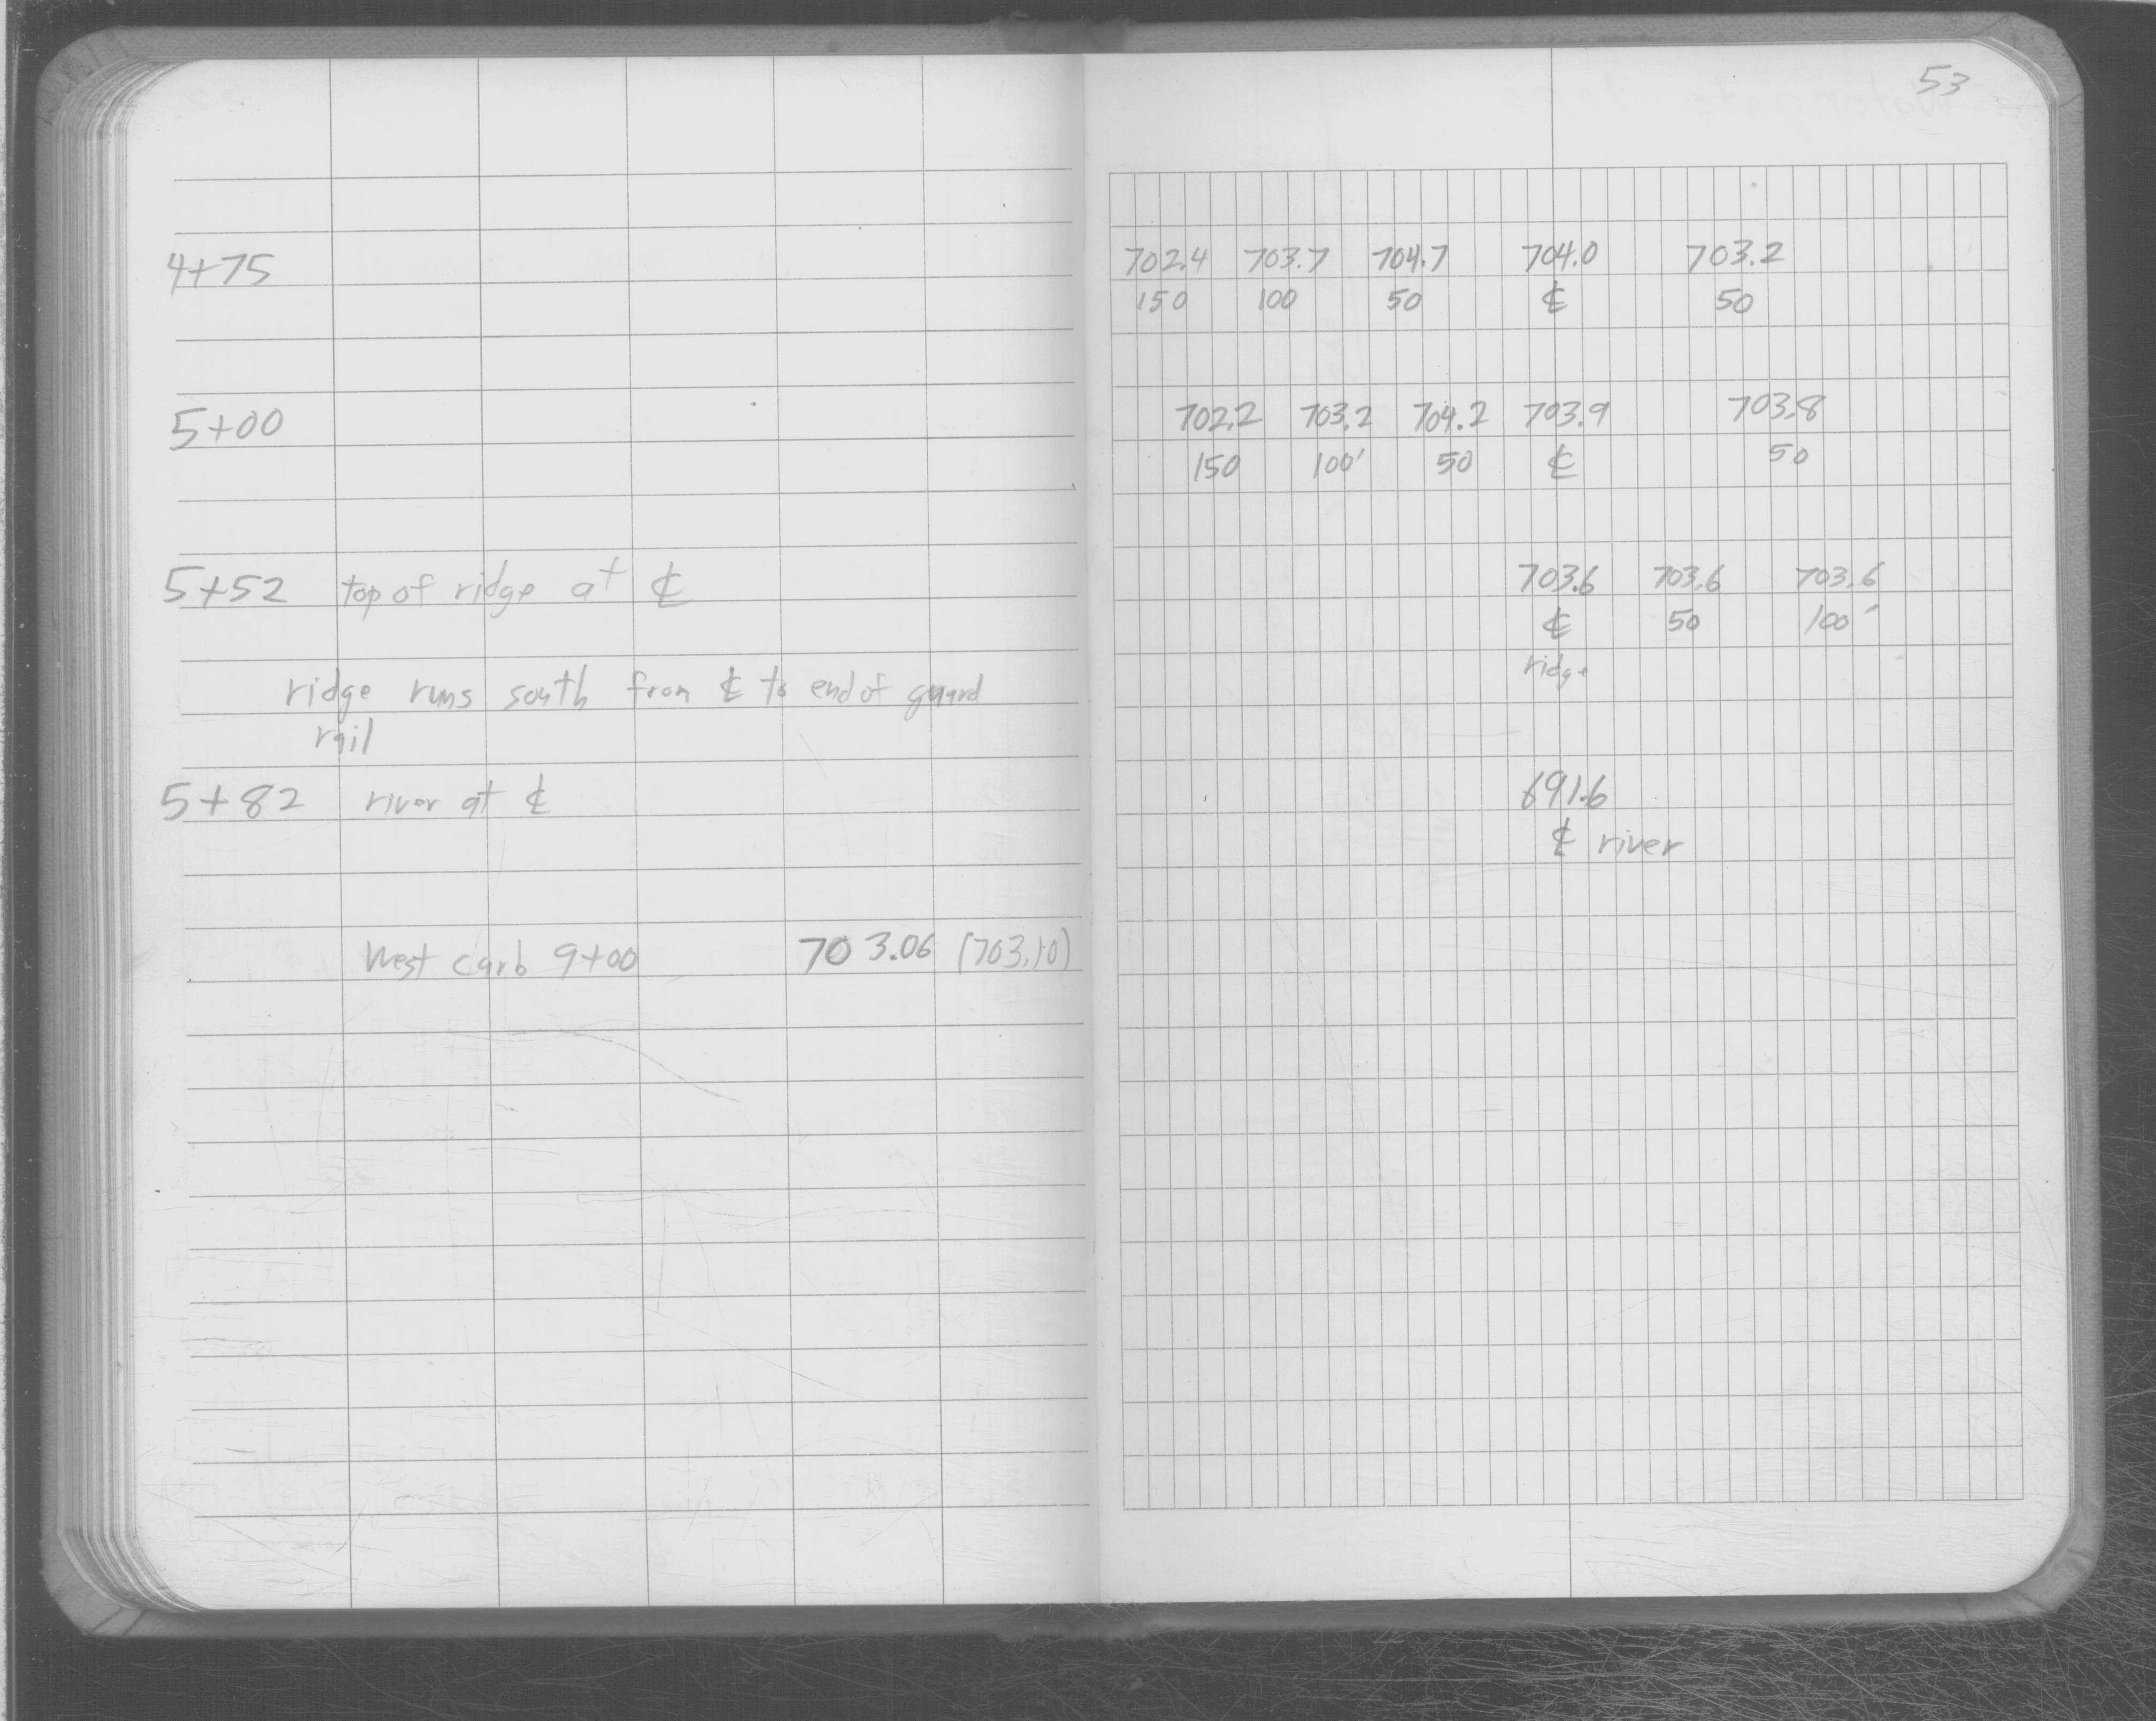 53
4+75
702.4 703.7 704.7 704.0 703.2
150 100 50 ℄ 50
5+00
702.2 703.2 704.2 703.9 703.8
150 100' 50 ℄ 50
5+52 top of ridge at ℄
703.6 703.6 703.6
℄ 50 100'
ridge
ridge runs south from ℄ to end of guard
rail
5+82 river at ℄
691.6
℄ river
West curb 9+00 703.06 (703.10)